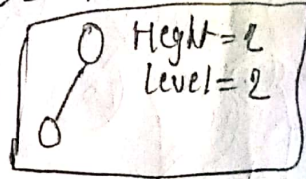 Heght=2
level=2